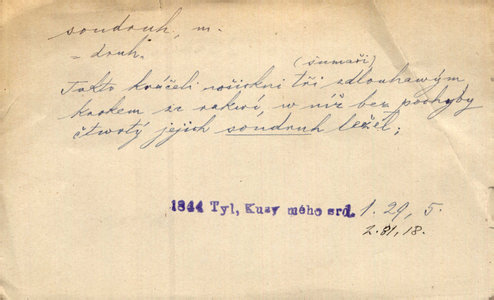 soudruh, m.
= druh.
(sumaři)
Takto kráčeli wšickni tři zdlouhawým
krokem za rakwí, w níž bez pochyby
čtwrtý jejich soudruh ležel;
1844 Tyl, Kusy mého srd. 1. 29, 5.
2. 81, 18.